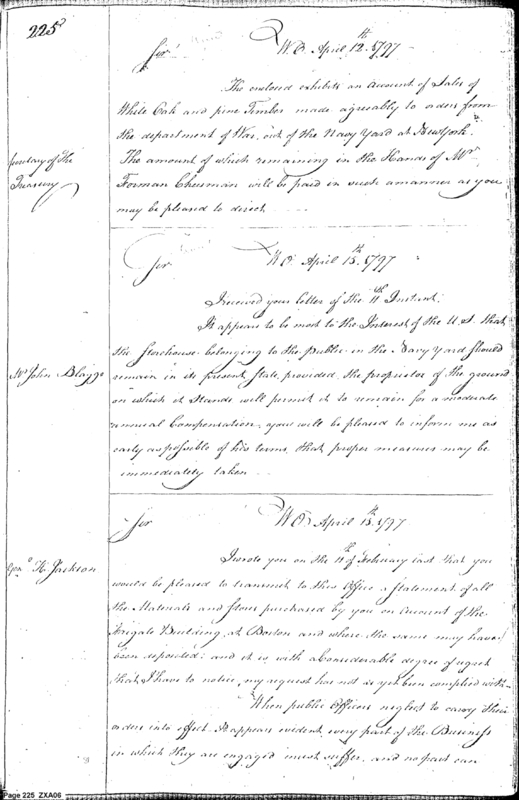 225
W.O. April 12th 1797
Sir
The enclosed exhibits an account of Sales of
White Oak and pine Timber made agreeably to orders from
the department of War, out of the Navy Yard at New York.
Secretary of the
Treasury
The amount of which remaining in the Hands of Mr
Forman Cheesman will be paid in such a manner as you
may be pleased to direct
Sir
W.O. April 13th 1797
I received your letter of the 11th Instant.
It appears to be most to the Interest of the U.S. that
the Storehouse belonging to the public in the Navy Yard should
Mr John Blagge
remain in its present State, provided the proprietor of the ground
on which it Stands will permit it to remain for a moderate
annual Compensation. you will be pleased to inform me as
early as possible of his terms, that proper measures may be
immediately taken
Sir
W.O. April 13th 1797
Genl H. Jackson
I wrote you on the of February last that you
would be pleased to transmit to this Office a Statement of all
the Materials and Stores purchased by you on account of the
Frigate Building at Boston and where the same may have
been deposited: and it is with a Considerable degree of regret
that I have to notice, my request has not as yet been complied with
When public Officers neglect to carry their
orders into effect. It appears evident every part of the Business
in which they are engaged must suffer, and no part can
Page 225 ZXA06